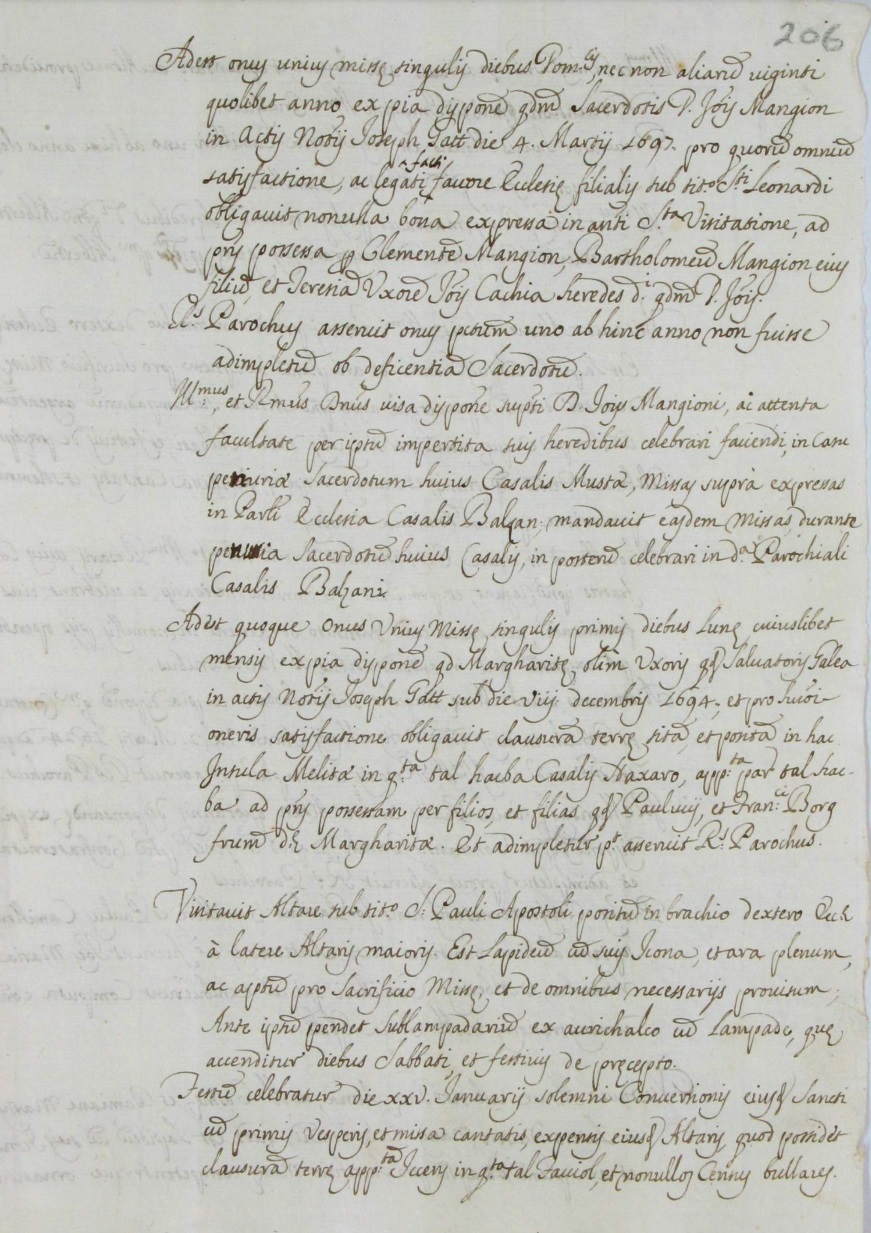 206
Adest onus unius missę singulis diebus Dom.cis, nec non aliarũ uiginti
quolibet anno ex pia dispone qdm̃ Sacerdotis D. Jois Mangion
in Actis Notrij Joseph Gatt die 4. Martij 1697. pro quorũ omniũ
satisfactione, ac legati ^facti fauore Ecclesię filialis sub tit.o S.ti Leonardi
obligauit nonulla bona expressa in anti S.ta Visitatione, ad
pñs possessa p Clementẽ Mangion, Bartholomeũ Mangion eius
filiũ, et Teresiã Uxorẽ Jois Cachia heredes d.i qdm̃ D. Jois.
R.s Parochus asseruit onus pctum uno ab hinc anno non fuisse
adimpletũ ob deficentiã Sacerdotũ.
Ill.mus, et Rmus Dnus uisa dispone supti D. Jois Mangioni, ac attenta
facultate per iptũ impertita suis heredibus celebrari faciendi, in casu
penuriæ Sacerdotum huius Casalis Mustæ, Missas supra expressas
in Parli Ecclesia Casalis Balzan; mandauit easdem missas, durante
penuria Sacerdotũ huius Casalis, in posterũ celebrari in d.a Parochiali
Casalis Balzani.
Adest quoque onus Unius Missę singulis primis diebus Lunę cuiuslibet
mensis ex pia dispone qd Margharitę olim Uxoris qd Saluatoris Galea
in actis Notrij Joseph Gatt sub die viij decembris 1694; et pro huiõi
oneris satisfactione obligauit clausurã terrę sitã, et positã in hac
Insula Melitæ in q.ta tal hacba Casalis Naxaro, app.ta par tal hac-
ba ad pñs possessam per filios, et filias qd Pauluij, et Fran.ci Borg
frum d.ę Margharitæ. Et adimpletur p.t asseruit R.s Parochus.
Visitauit Altare sub tit.o S. Pauli Apostoli positũ in brachio dextero Eccę
à latere Altaris maioris. Est Lapideũ cũ suis Icona, et ara plenum,
ac aptũ pro Sacrificio Missę, et de omnibus necessarijs prouisum;
Ante iptũ pendet sublampadariũ ex aurichalco cũ Lampade, quę
accenditur diebus Sabbati, et festiuis de pręcepto.
Festũ celebratur die xxv. Januarij solemni Conuersionis eiusd Sancti
cũ primis Vesperis, et missa cantatis, expensis eiusd Altaris, quod possidet
clausurã terrę app.tã Iccens in q.ta tal Fauiol, et nonullos Census bullares.